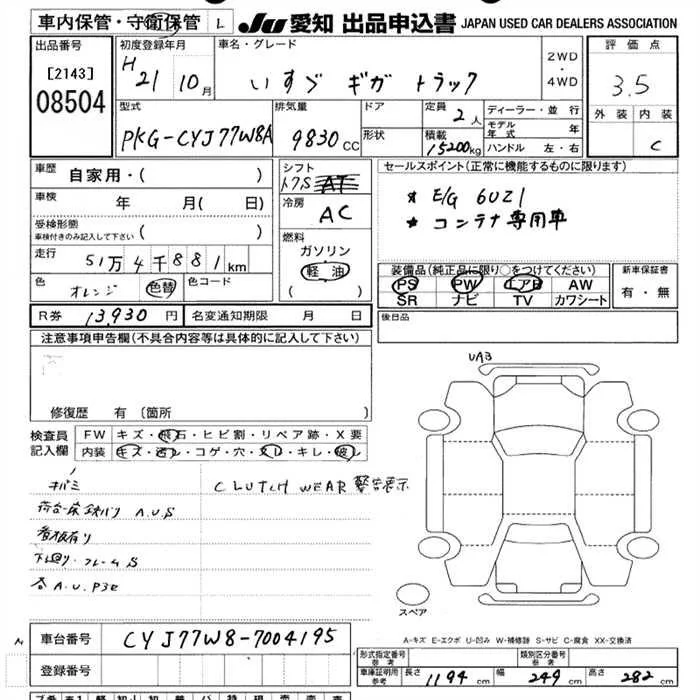 車内保管・守衛保管 L
JU 愛知 出品申込書 JAPAN USED CAR DEALERS ASSOCIATION
出品番号 [2143] 08504
初度登録年月 H 21 10月
車名・グレード いすゞ ギガ トラック
2WD・4WD
評価点 3.5
外装 内装 C
型式 PKG-CYJ77W8A
排気量 9830 CC
ドア
形状
定員 2人
積載 15200kg
ディーラー・並行
モデル年式 年
ハンドル 左・右
車歴 自家用・( )
車検 年 月( 日)
受検形態
車検付きのみ記入して下さい ( )
走行 51万4千881km
色 オレンジ 色替 色コード
シフト トフS AT
冷房 AC
燃料 ガソリン 軽油 ( )
セールスポイント(正常に機能するものに限ります)
★ E/G 6UZ1
★ コンテナ専用車
装備品(純正品に限り○をつけてください)
PS PW エアB AW
SR ナビ TV カワシート
新車保証書 有・無
R券 13,930円 名変通知期限 月 日
後日品
注意事項申告欄(不具合内容等は具体的に記入して下さい)
修復歴 有 (箇所
検査員記入欄
FW キズ・飛石・ヒビ割・リペア跡・X要
内装 キズ・汚レ・コゲ・穴・スレ・キレ・破レ
CLUTCH WEAR 警告表示
A.U.S
看板有り
下廻り・フレーム S
A.U.P3e
UA3
スペア
A-キズ E-エクボ U-凹み W-補修跡 S-サビ C-腐食 XX-交換済
車台番号 CYJ77W8-7004195
登録番号
形式指定番号 参考
類別区分番号 参考
車庫証明用参考 長さ 1194 cm 幅 249 cm 高さ 282 cm